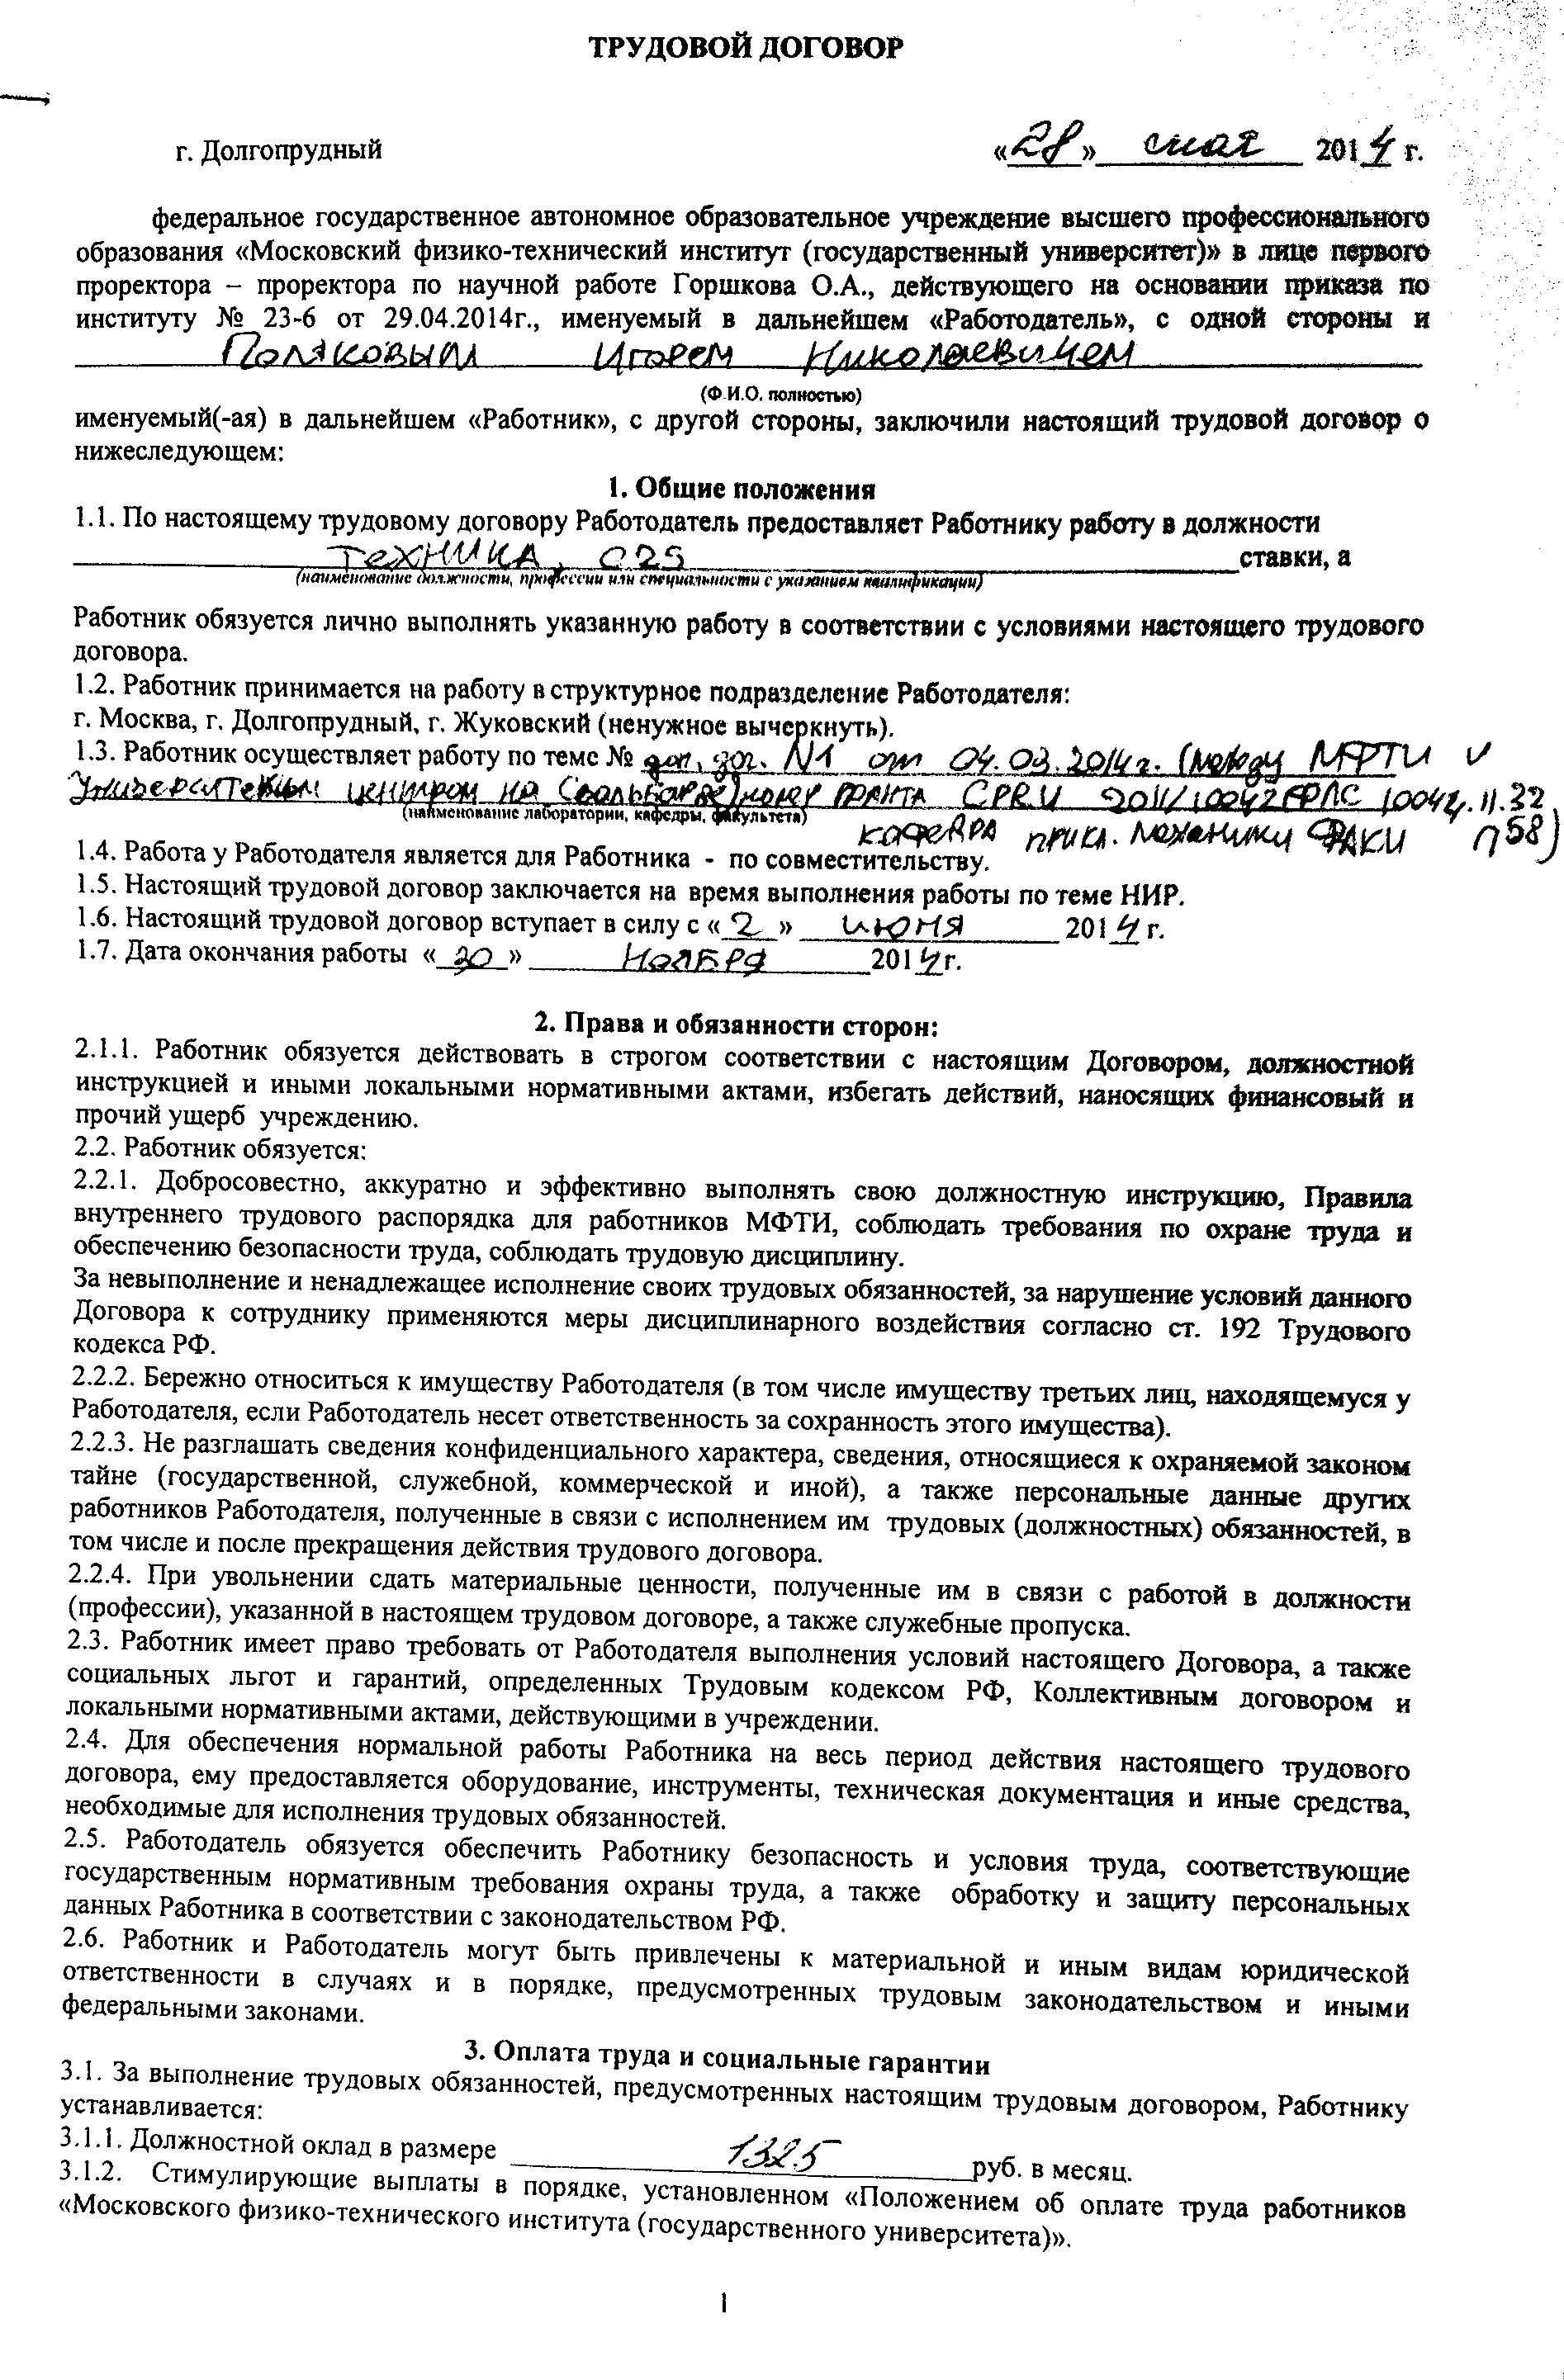 ТРУДОВОЙ ДОГОВОР
г. Долгопрудный «28» мая 2014 г.
федеральное государственное автономное образовательное учреждение высшего профессионального
образования «Московский физико-технический институт (государственный университет)» в лице первого
проректора – проректора по научной работе Горшкова О.А., действующего на основании приказа по
институту № 23-6 от 29.04.2014г., именуемый в дальнейшем «Работодатель», с одной стороны и
Поляковым Игорем Николаевичем
(Ф.И.О. полностью)
именуемый(-ая) в дальнейшем «Работник», с другой стороны, заключили настоящий трудовой договор о
нижеследующем:
1. Общие положения
1.1. По настоящему трудовому договору Работодатель предоставляет Работнику работу в должности
техника, 0.25 ставки, а
(наименование должности, профессии или специальности с указанием квалификации)
Работник обязуется лично выполнять указанную работу в соответствии с условиями настоящего трудового
договора.
1.2. Работник принимается на работу в структурное подразделение Работодателя:
г. Москва, г. Долгопрудный, г. Жуковский (ненужное вычеркнуть).
1.3. Работник осуществляет работу по теме № доп. дог. N1 от 04.03.2014г. (между МФТИ и
Университетским центром на Свальбарде) номер гранта CPRU 2011/10042 10042.11.32
(наименование лаборатории, кафедры, факультета)
кафедра прикл. механики ФАКИ П58)
1.4. Работа у Работодателя является для Работника - по совместительству.
1.5. Настоящий трудовой договор заключается на время выполнения работы по теме НИР.
1.6. Настоящий трудовой договор вступает в силу с «2» июня 2014 г.
1.7. Дата окончания работы «30» ноября 2014г.
2. Права и обязанности сторон:
2.1.1. Работник обязуется действовать в строгом соответствии с настоящим Договором, должностной
инструкцией и иными локальными нормативными актами, избегать действий, наносящих финансовый и
прочий ущерб учреждению.
2.2. Работник обязуется:
2.2.1. Добросовестно, аккуратно и эффективно выполнять свою должностную инструкцию, Правила
внутреннего трудового распорядка для работников МФТИ, соблюдать требования по охране труда и
обеспечению безопасности труда, соблюдать трудовую дисциплину.
За невыполнение и ненадлежащее исполнение своих трудовых обязанностей, за нарушение условий данного
Договора к сотруднику применяются меры дисциплинарного воздействия согласно ст. 192 Трудового
кодекса РФ.
2.2.2. Бережно относиться к имуществу Работодателя (в том числе имуществу третьих лиц, находящемуся у
Работодателя, если Работодатель несет ответственность за сохранность этого имущества).
2.2.3. Не разглашать сведения конфиденциального характера, сведения, относящиеся к охраняемой законом
тайне (государственной, служебной, коммерческой и иной), а также персональные данные других
работников Работодателя, полученные в связи с исполнением им трудовых (должностных) обязанностей, в
том числе и после прекращения действия трудового договора.
2.2.4. При увольнении сдать материальные ценности, полученные им в связи с работой в должности
(профессии), указанной в настоящем трудовом договоре, а также служебные пропуска.
2.3. Работник имеет право требовать от Работодателя выполнения условий настоящего Договора, а также
социальных льгот и гарантий, определенных Трудовым кодексом РФ, Коллективным договором и
локальными нормативными актами, действующими в учреждении.
2.4. Для обеспечения нормальной работы Работника на весь период действия настоящего трудового
договора, ему предоставляется оборудование, инструменты, техническая документация и иные средства,
необходимые для исполнения трудовых обязанностей.
2.5. Работодатель обязуется обеспечить Работнику безопасность и условия труда, соответствующие
государственным нормативным требования охраны труда, а также обработку и защиту персональных
данных Работника в соответствии с законодательством РФ.
2.6. Работник и Работодатель могут быть привлечены к материальной и иным видам юридической
ответственности в случаях и в порядке, предусмотренных трудовым законодательством и иными
федеральными законами.
3. Оплата труда и социальные гарантии
3.1. За выполнение трудовых обязанностей, предусмотренных настоящим трудовым договором, Работнику
устанавливается:
3.1.1. Должностной оклад в размере 1325 руб. в месяц.
3.1.2. Стимулирующие выплаты в порядке, установленном «Положением об оплате труда работников
«Московского физико-технического института (государственного университета)».
1